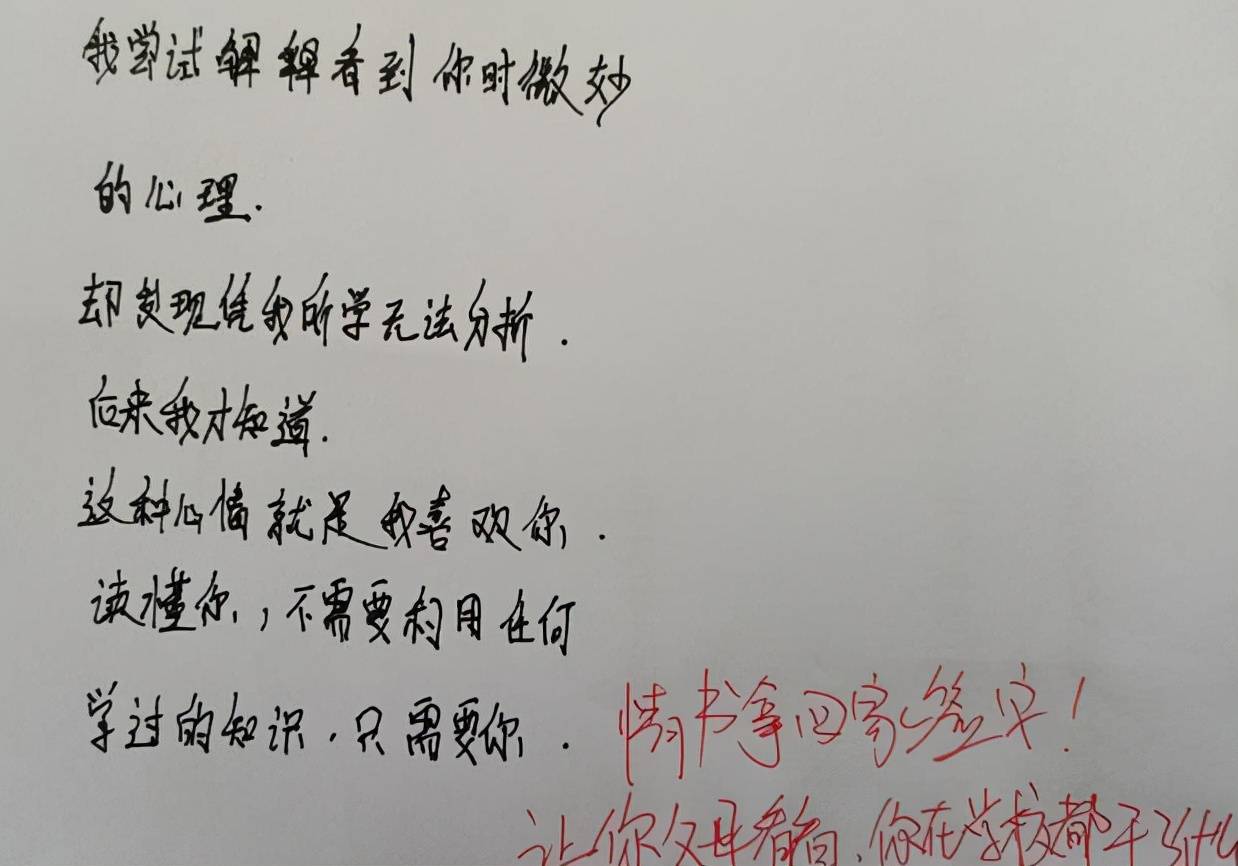 我尝试解释看到你时微妙
的心理.
却发现凭我所学无法分析.
后来我才知道.
这种心情就是我喜欢你.
读懂你,不需要利用任何
学过的知识.只需要你.
情书拿回家签字!
让你父母看看,你在学校都干了什么